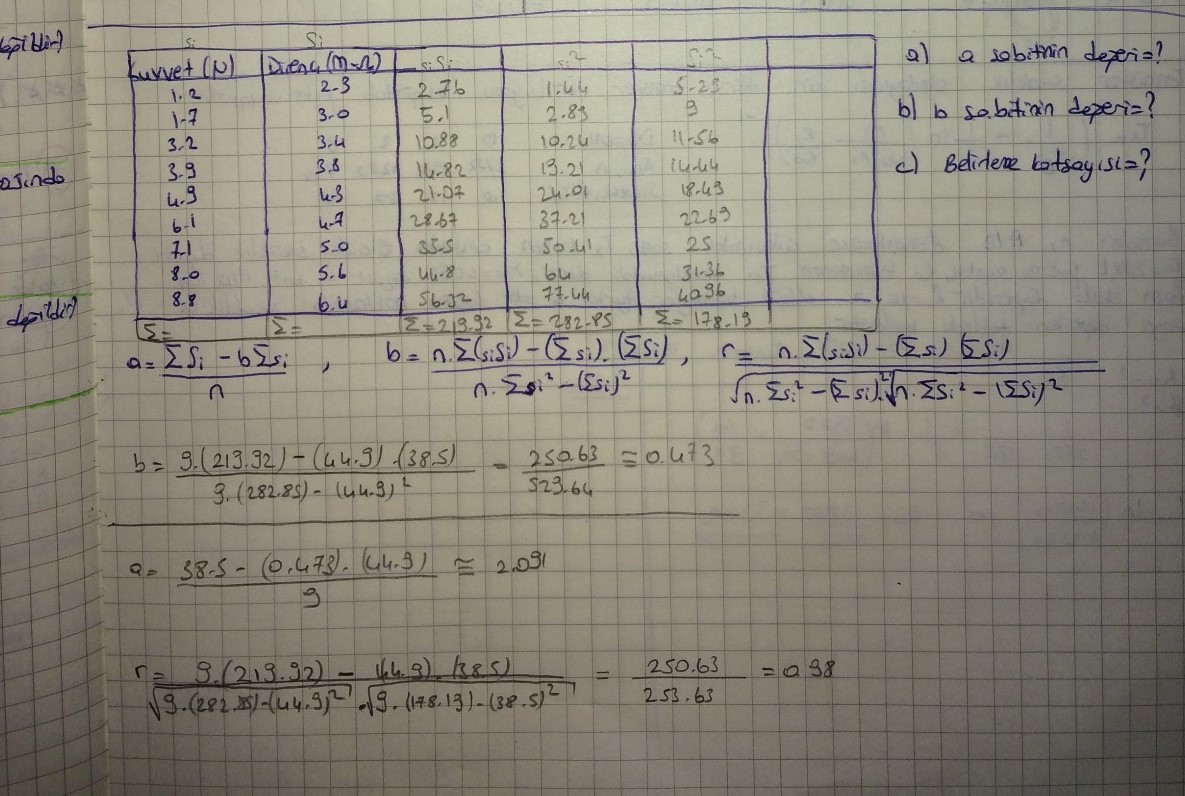 si Si
Kuvvet (N) Direnç (m-Ω) siSi si² Si²
1.2 2.3 2.76 1.44 5.29
1.7 3.0 5.1 2.89 9
3.2 3.4 10.88 10.24 11.56
3.9 3.8 14.82 15.21 14.44
4.9 4.3 21.07 24.01 18.49
6.1 4.7 28.67 37.21 22.69
7.1 5.0 35.5 50.41 25
8.0 5.6 44.8 64 31.36
8.8 6.4 56.32 77.44 40.96
Σ= Σ= Σ=219.92 Σ=282.85 Σ=178.19
a) a sabitinin değeri=?
b) b sabitinin değeri=?
c) Belirleme katsayısı=?
a= ΣSi - bΣsi / n , b= n.Σ(siSi)-(Σsi).(ΣSi) / n.Σsi²-(Σsi)² , r= n.Σ(siSi)-(Σsi)(ΣSi) / √n.Σsi²-(Σsi)².√n.ΣSi²-(ΣSi)²
b= 9.(219.92)-(44.9).(38.5) / 9.(282.85)-(44.9)² = 250.63 / 529.64 ≅ 0.473
a= 38.5-(0.473).(44.9) / 9 ≅ 2.091
r= 9.(219.92)-(44.9).(38.5) / √9.(282.85)-(44.9)².√9.(178.19)-(38.5)² = 250.63 / 253.63 = 0.98